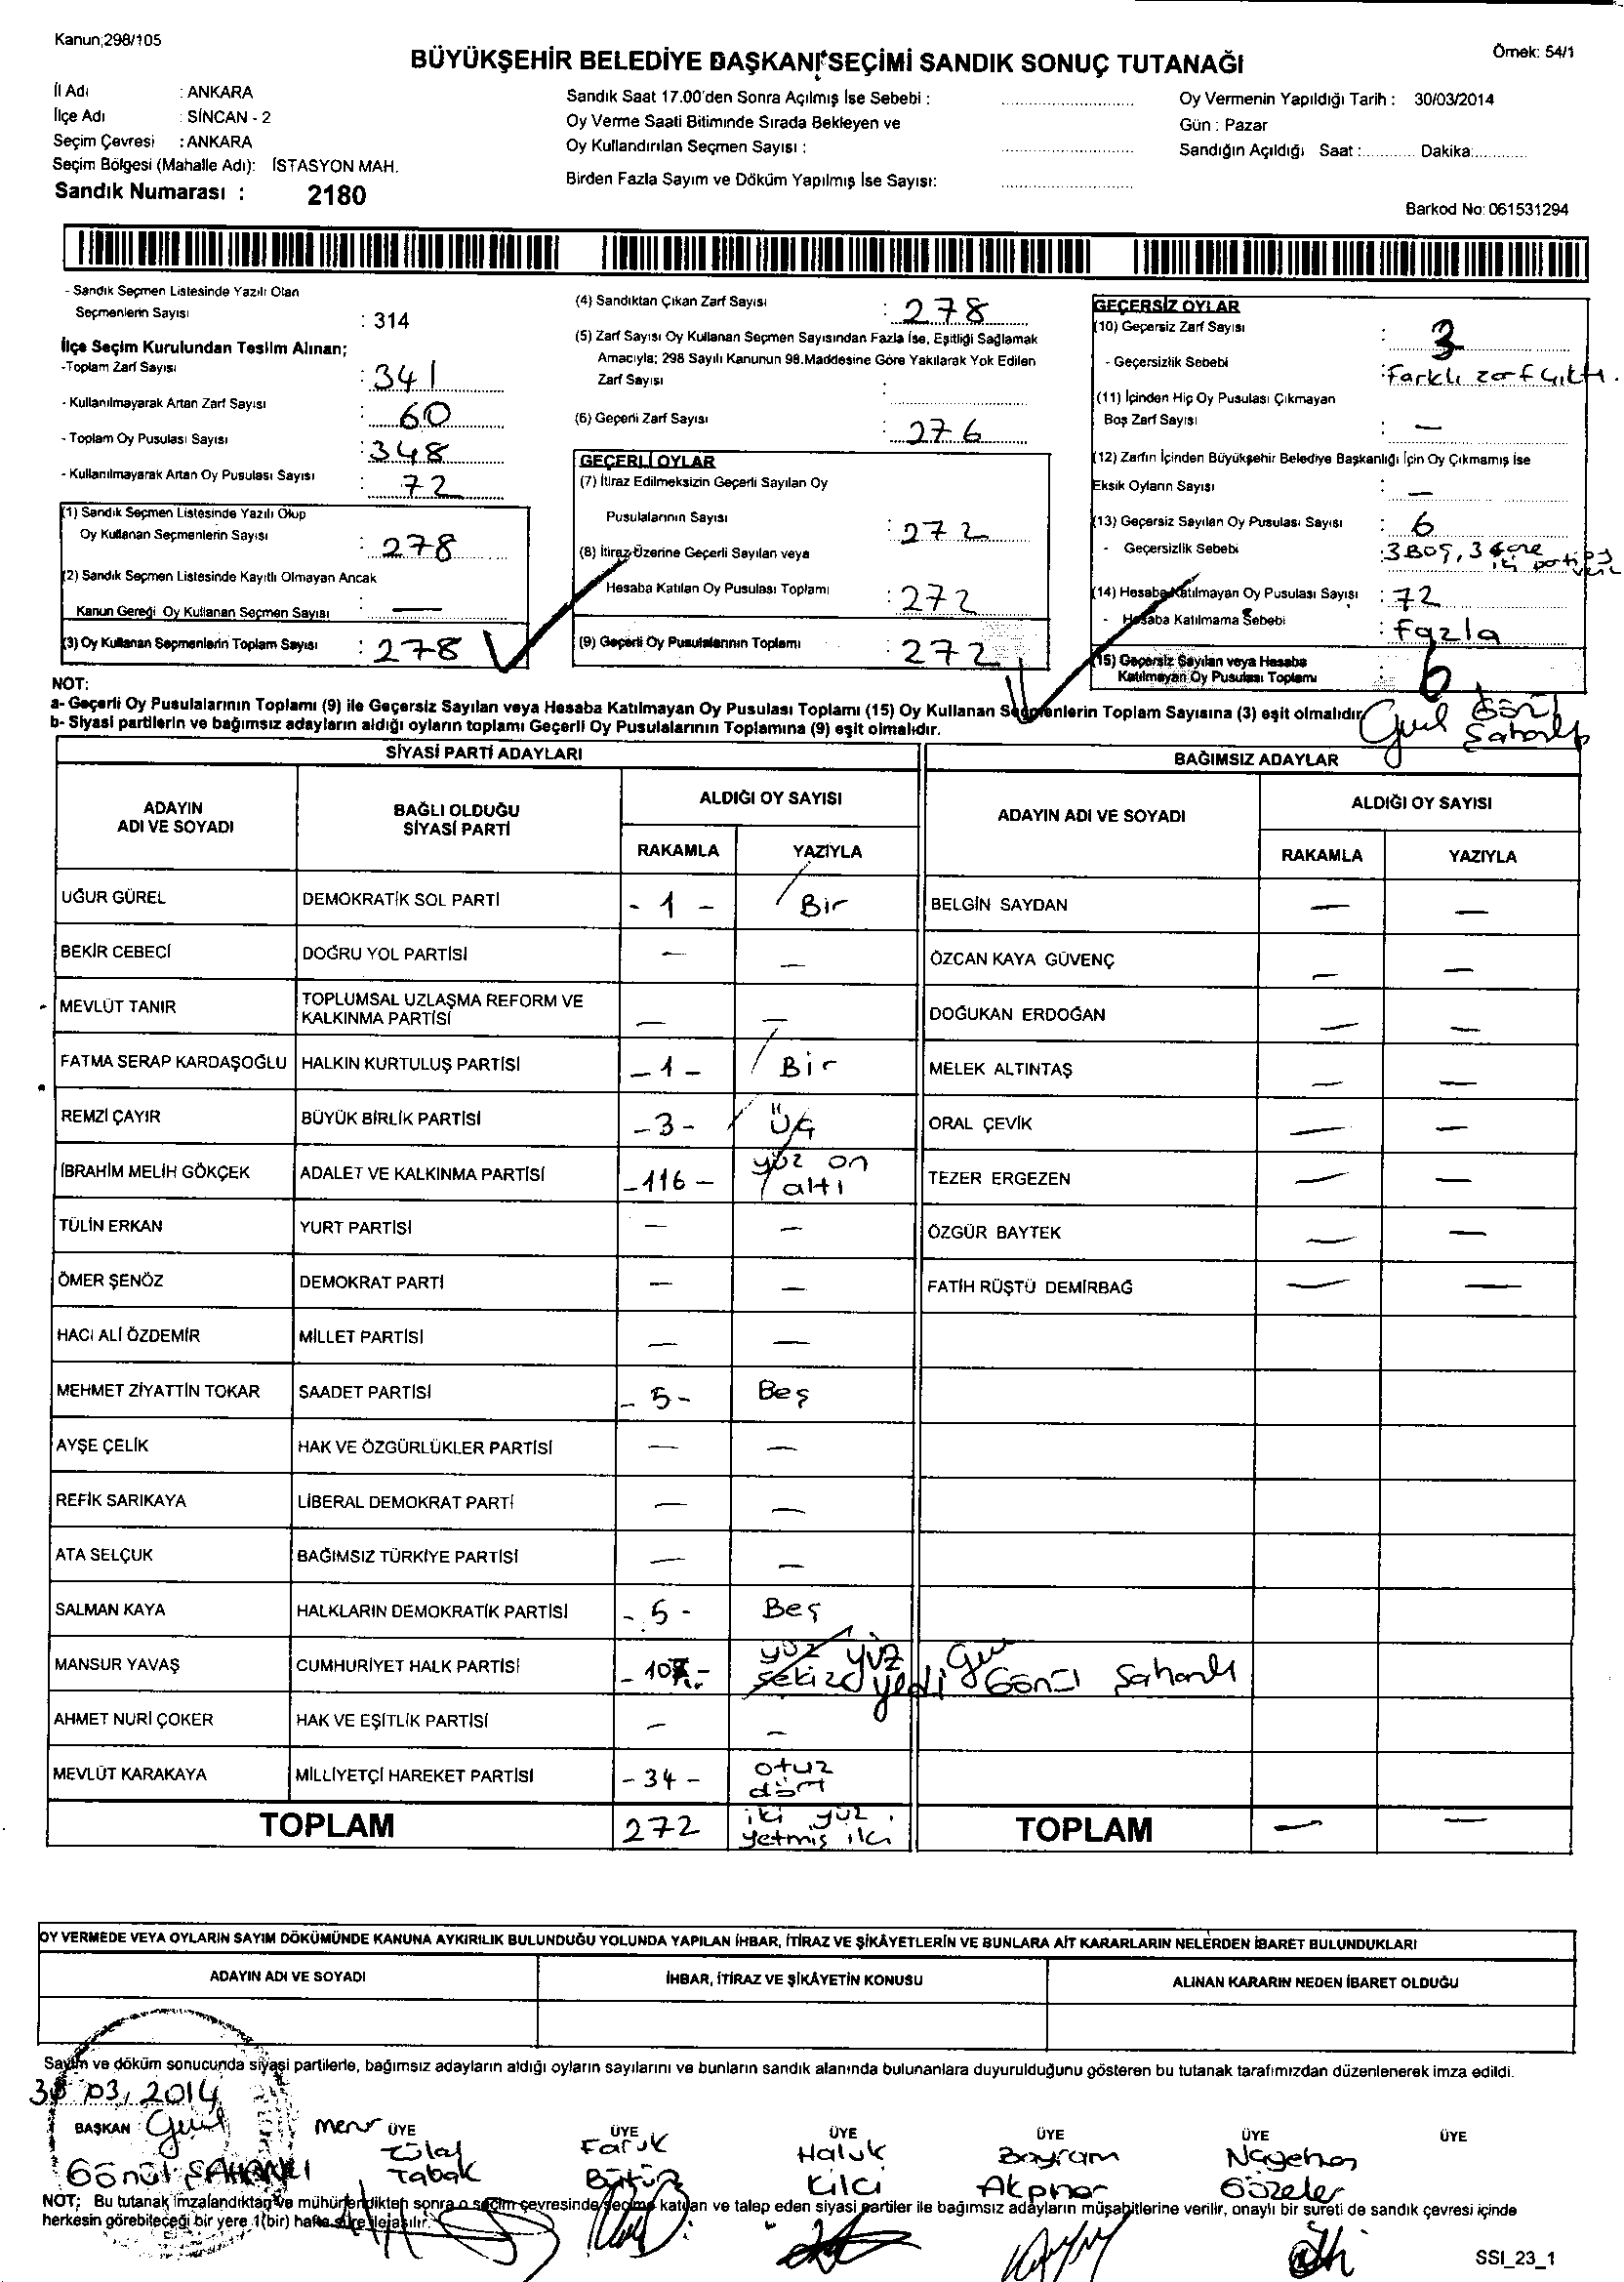 Kanun;298/105
Örnek: 54/1
BÜYÜKŞEHİR BELEDİYE BAŞKANI SEÇİMİ SANDIK SONUÇ TUTANAĞI
İl Adı : ANKARA
İlçe Adı : SİNCAN - 2
Seçim Çevresi : ANKARA
Seçim Bölgesi (Mahalle Adı): İSTASYON MAH.
Sandık Numarası : 2180
Sandık Saat 17.00'den Sonra Açılmış İse Sebebi :
Oy Verme Saati Bitiminde Sırada Bekleyen ve
Oy Kullandırılan Seçmen Sayısı :
Birden Fazla Sayım ve Döküm Yapılmış İse Sayısı:
Oy Vermenin Yapıldığı Tarih : 30/03/2014
Gün : Pazar
Sandığın Açıldığı Saat :............ Dakika:............
Barkod No: 061531294
- Sandık Seçmen Listesinde Yazılı Olan
Seçmenlerin Sayısı : 314
İlçe Seçim Kurulundan Teslim Alınan;
-Toplam Zarf Sayısı : 341
- Kullanılmayarak Artan Zarf Sayısı : 60
- Toplam Oy Pusulası Sayısı : 348
- Kullanılmayarak Artan Oy Pusulası Sayısı : 72
(1) Sandık Seçmen Listesinde Yazılı Olup
Oy Kullanan Seçmenlerin Sayısı : 278
(2) Sandık Seçmen Listesinde Kayıtlı Olmayan Ancak
Kanun Gereği Oy Kullanan Seçmen Sayısı : —
(3) Oy Kullanan Seçmenlerin Toplam Sayısı : 278
(4) Sandıktan Çıkan Zarf Sayısı : 278
(5) Zarf Sayısı Oy Kullanan Seçmen Sayısından Fazla İse, Eşitliği Sağlamak
Amacıyla; 298 Sayılı Kanunun 98.Maddesine Göre Yakılarak Yok Edilen
Zarf Sayısı :
(6) Geçerli Zarf Sayısı : 276
GEÇERLİ OYLAR
(7) İtiraz Edilmeksizin Geçerli Sayılan Oy
Pusulalarının Sayısı : 272
(8) İtiraz Üzerine Geçerli Sayılan veya
Hesaba Katılan Oy Pusulası Toplamı : 272
(9) Geçerli Oy Pusulalarının Toplamı : 272
GEÇERSİZ OYLAR
(10) Geçersiz Zarf Sayısı : 3
- Geçersizlik Sebebi : Farklı zarf çıktı.
(11) İçinden Hiç Oy Pusulası Çıkmayan
Boş Zarf Sayısı : —
(12) Zarfın İçinden Büyükşehir Belediye Başkanlığı İçin Oy Çıkmamış İse
Eksik Oyların Sayısı : —
(13) Geçersiz Sayılan Oy Pusulası Sayısı : 6
- Geçersizlik Sebebi : 3 Boş, 3
(14) Hesaba Katılmayan Oy Pusulası Sayısı : 72
- Hesaba Katılmama Sebebi : Fazla
(15) Geçersiz Sayılan veya Hesaba
Katılmayan Oy Pusulası Toplamı : 6
NOT:
a- Geçerli Oy Pusulalarının Toplamı (9) ile Geçersiz Sayılan veya Hesaba Katılmayan Oy Pusulası Toplamı (15) Oy Kullanan Seçmenlerin Toplam Sayısına (3) eşit olmalıdır.
b- Siyasi partilerin ve bağımsız adayların aldığı oyların toplamı Geçerli Oy Pusulalarının Toplamına (9) eşit olmalıdır.
SİYASİ PARTİ ADAYLARI
BAĞIMSIZ ADAYLAR
ADAYIN ADI VE SOYADI BAĞLI OLDUĞU SİYASİ PARTİ ALDIĞI OY SAYISI
RAKAMLA YAZIYLA
ADAYIN ADI VE SOYADI ALDIĞI OY SAYISI
RAKAMLA YAZIYLA
UĞUR GÜREL DEMOKRATİK SOL PARTİ - 1 - Bir BELGİN SAYDAN — —
BEKİR CEBECİ DOĞRU YOL PARTİSİ — — ÖZCAN KAYA GÜVENÇ — —
MEVLÜT TANIR TOPLUMSAL UZLAŞMA REFORM VE KALKINMA PARTİSİ — — DOĞUKAN ERDOĞAN — —
FATMA SERAP KARDAŞOĞLU HALKIN KURTULUŞ PARTİSİ - 1 - Bir MELEK ALTINTAŞ — —
REMZİ ÇAYIR BÜYÜK BİRLİK PARTİSİ - 3 - Üç ORAL ÇEVİK — —
İBRAHİM MELİH GÖKÇEK ADALET VE KALKINMA PARTİSİ - 116 - yüz on altı TEZER ERGEZEN — —
TÜLİN ERKAN YURT PARTİSİ — — ÖZGÜR BAYTEK — —
ÖMER ŞENÖZ DEMOKRAT PARTİ — — FATİH RÜŞTÜ DEMİRBAĞ — —
HACI ALİ ÖZDEMİR MİLLET PARTİSİ — —
MEHMET ZİYATTİN TOKAR SAADET PARTİSİ - 5 - Beş
AYŞE ÇELİK HAK VE ÖZGÜRLÜKLER PARTİSİ — —
REFİK SARIKAYA LİBERAL DEMOKRAT PARTİ — —
ATA SELÇUK BAĞIMSIZ TÜRKİYE PARTİSİ — —
SALMAN KAYA HALKLARIN DEMOKRATİK PARTİSİ - 5 - Beş
MANSUR YAVAŞ CUMHURİYET HALK PARTİSİ - 107 - yüz sekiz yüz yedi Gönül Şahanlı
AHMET NURİ ÇOKER HAK VE EŞİTLİK PARTİSİ — —
MEVLÜT KARAKAYA MİLLİYETÇİ HAREKET PARTİSİ - 34 - otuz dört
TOPLAM 272 iki yüz yetmiş iki TOPLAM — —
OY VERMEDE VEYA OYLARIN SAYIM DÖKÜMÜNDE KANUNA AYKIRILIK BULUNDUĞU YOLUNDA YAPILAN İHBAR, İTİRAZ VE ŞİKÂYETLERİN VE BUNLARA AİT KARARLARIN NELERDEN İBARET BULUNDUKLARI
ADAYIN ADI VE SOYADI İHBAR, İTİRAZ VE ŞİKÂYETİN KONUSU ALINAN KARARIN NEDEN İBARET OLDUĞU
Sayım ve döküm sonucunda siyasi partilerle, bağımsız adayların aldığı oyların sayılarını ve bunların sandık alanında bulunanlara duyurulduğunu gösteren bu tutanak tarafımızdan düzenlenerek imza edildi.
30.03.2014
BAŞKAN ÜYE ÜYE ÜYE ÜYE ÜYE ÜYE
Gönül ŞAHANLI Zülal Tabak Faruk Haluk Kilci Bayram Akpınar Nagehan Gözeler
NOT; Bu tutanak imzalandıktan ve mühürlendikten sonra o seçim çevresinde seçime katılan ve talep eden siyasi partiler ile bağımsız adayların müşahitlerine verilir, onaylı bir sureti de sandık çevresi içinde
herkesin görebileceği bir yere 1(bir) hafta süre ile asılır.
SSI_23_1